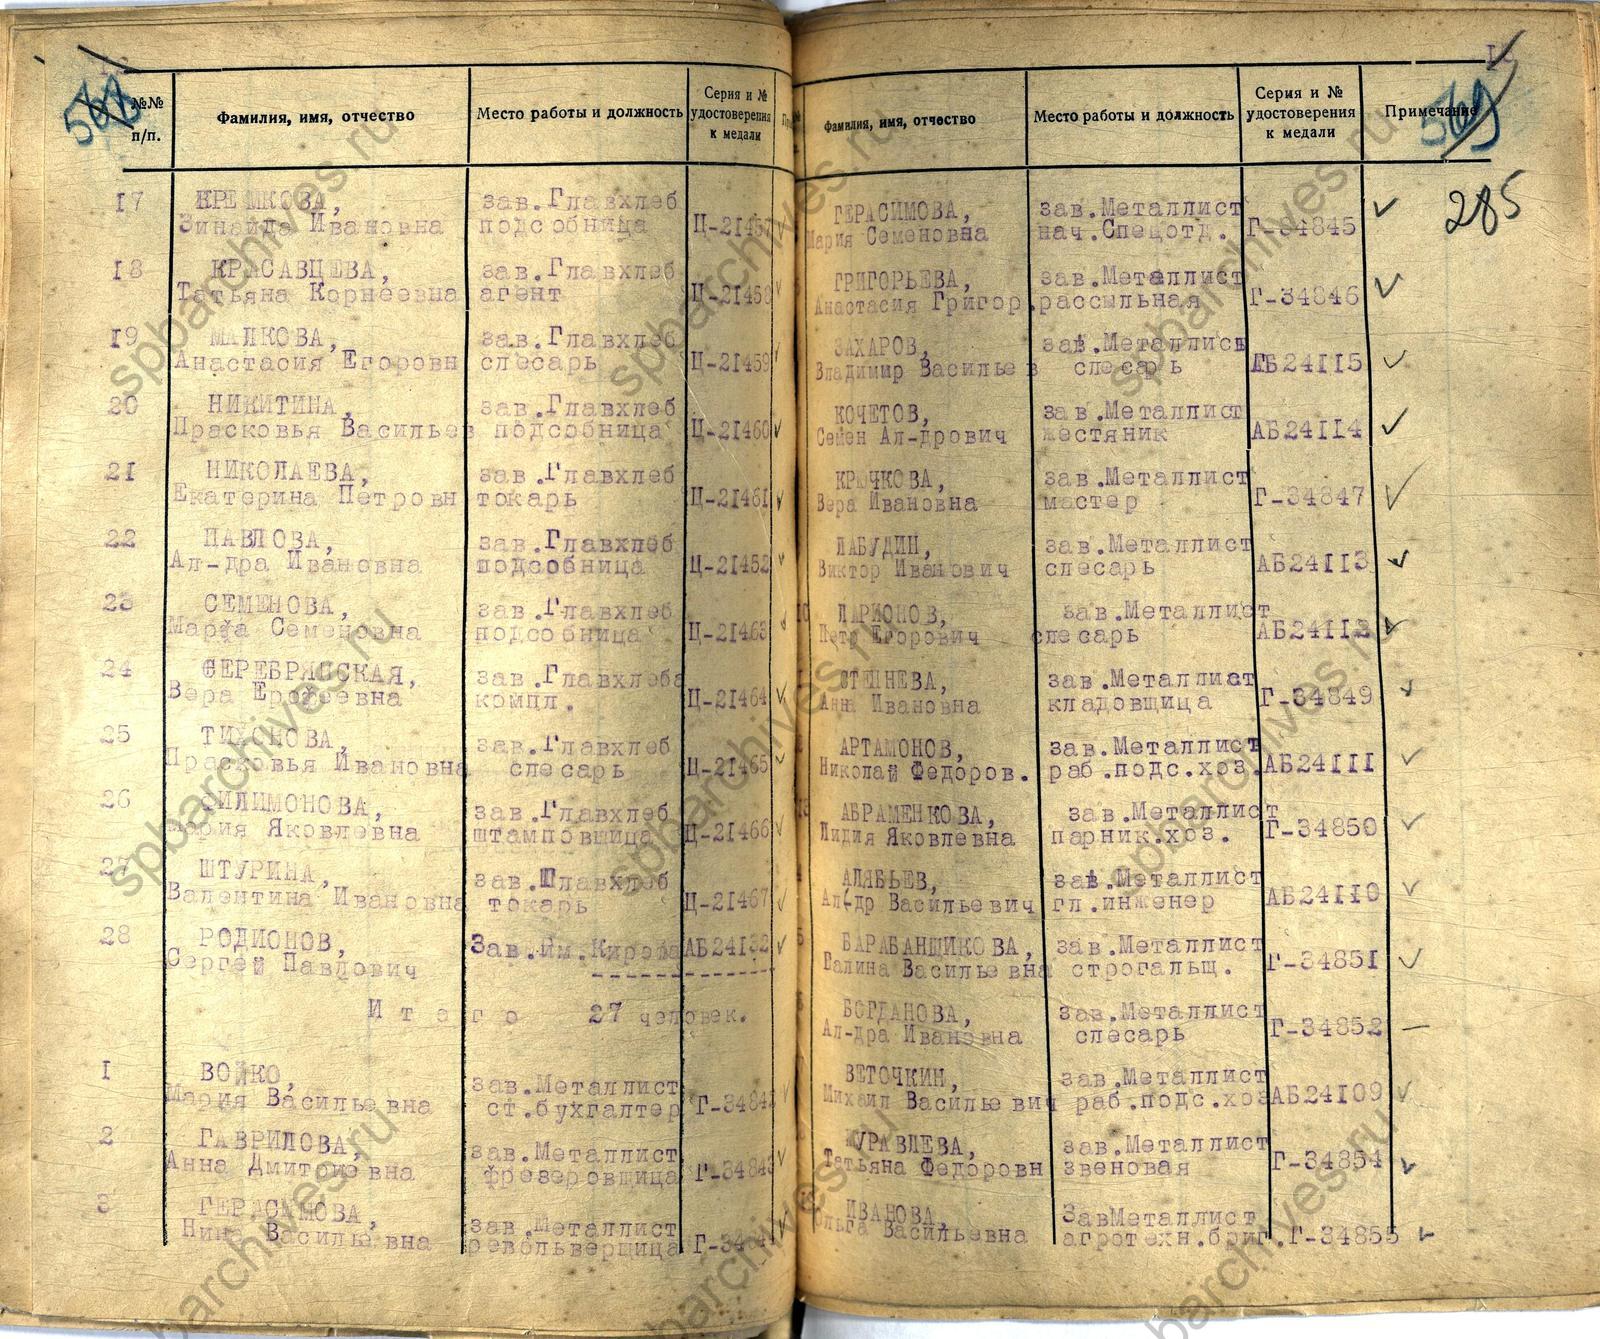 №№ п/п.
Фамилия, имя, отчество
Место работы и должность
Серия и № удостоверения к медали
17 КРЕМКОВА, зав.Главхлеб
Зинаида Ивановна подсобница Ц-21457
18 КРАСАВЦЕВА, зав.Главхлеб
Татьяна Корнеевна агент Ц-21458
19 МАЛКОВА, зав.Главхлеб
Анастасия Егоровн слесарь Ц-21459
20 НИКИТИНА, зав.Главхлеб
Прасковья Васильев подсобница Ц-21460
21 НИКОЛАЕВА, зав.Главхлеб
Екатерина Петровн токарь Ц-21461
22 ПАВЛОВА, зав.Главхлеб
Ал-дра Ивановна подсобница Ц-21452
23 СЕМЕНОВА, зав.Главхлеб
Марфа Семеновна подсобница Ц-21463
24 СЕРЕБРЯНСКАЯ, зав.Главхлеба
Вера Ерофеевна компл. Ц-21464
25 ТИХОНОВА, зав.Главхлеб
Прасковья Ивановна слесарь Ц-21465
26 ФИЛИМОНОВА, зав.Главхлеб
Мария Яковлевна штамповщица Ц-21466
27 ШТУРИНА, зав.Главхлеб
Валентина Ивановна токарь Ц-21467
28 РОДИОНОВ, Зав.Им.Кирова АБ24132
Сергей Павлович
Итого 27 человек.
1 ВОЙКО, зав.Металлист
Мария Васильевна ст.бухгалтер Г-34842
2 ГАВРИЛОВА, зав.Металлист
Анна Дмитриевна фрезеровщица Г-34843
3 ГЕРАСИМОВА, зав.Металлист
Нина Васильевна револьверщица
Фамилия, имя, отчество
Место работы и должность
Серия и № удостоверения к медали
Примечание
569
285
ГЕРАСИМОВА, зав.Металлист
Мария Семеновна нач.Спецотд. Г-34845
ГРИГОРЬЕВА, зав.Металлист
Анастасия Григор.рассыльная Г-34846
ЗАХАРОВ, зав.Металлись
Владимир Васильев слесарь АБ24115
КОЧЕТОВ, зав.Металлист
Семен Ал-дрович жестяник АБ24114
КРЮЧКОВА, зав.Металлист
Вера Ивановна мастер Г-34847
ЛАБУДИН, зав.Металлист
Виктор Иванович слесарь АБ24113
10 ЛАРИОНОВ, зав.Металлист
Петр Егорович слесарь АБ24112
СТЕШНЕВА, зав.Металлист
Анна Ивановна кладовщица Г-34849
АРТАМОНОВ, зав.Металлист
Николай Федоров. раб.подс.хоз. АБ24111
13 АБРАМЕНКОВА, зав.Металлист
Лидия Яковлевна парник.хоз. Г-34850
АЛЯБЬЕВ, зав.Металлист
Ал-др Васильевич гл.инженер АБ24110
БАРАБАНЩИКОВА, зав.Металлист
Галина Васильевна строгальщ. Г-34851
БОГДАНОВА, зав.Металлист
Ал-дра Ивановна слесарь Г-34852
ВЕТОЧКИН, зав.Металлист
Михаил Васильевич раб.подс.хоз АБ24109
ЖУРАВЛЕВА, зав.Металлист
Татьяна Федоровн звеновая Г-34854
ИВАНОВА, ЗавМеталлист
Ольга Васильевна агротехн.бриг.Г-34855
spbarchives.ru